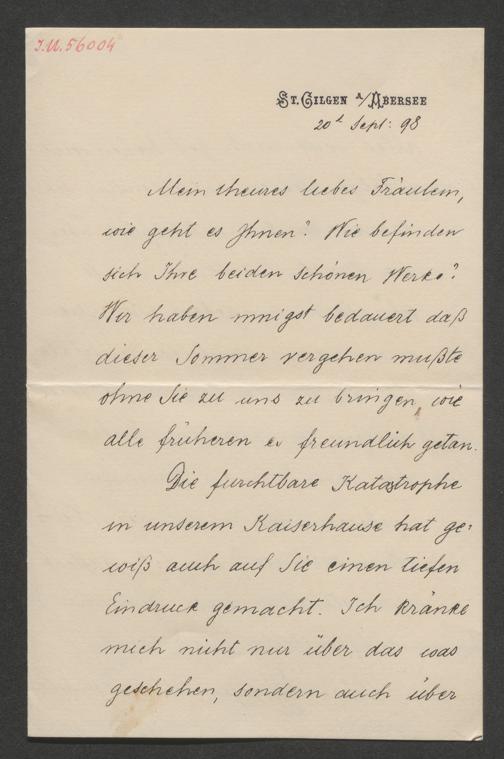 J.N.56004
St. Gilgen a/Abersee
20t Sept: 98
Mein theures liebes Fräulein,
wie geht es Ihnen? Wie befinden
sich Ihre beiden schönen Werke?
Wir haben innigst bedauert daß
dieser Sommer vergehen mußte
ohne Sie zu uns zu bringen, wie
alle früheren es freundlich getan.
Die furchtbare Katastrophe
in unserem Kaiserhause hat ge-
wiß auch auf Sie einen tiefen
Eindruck gemacht. Ich kränke
mich nicht nur über das was
geschehen, sondern auch über